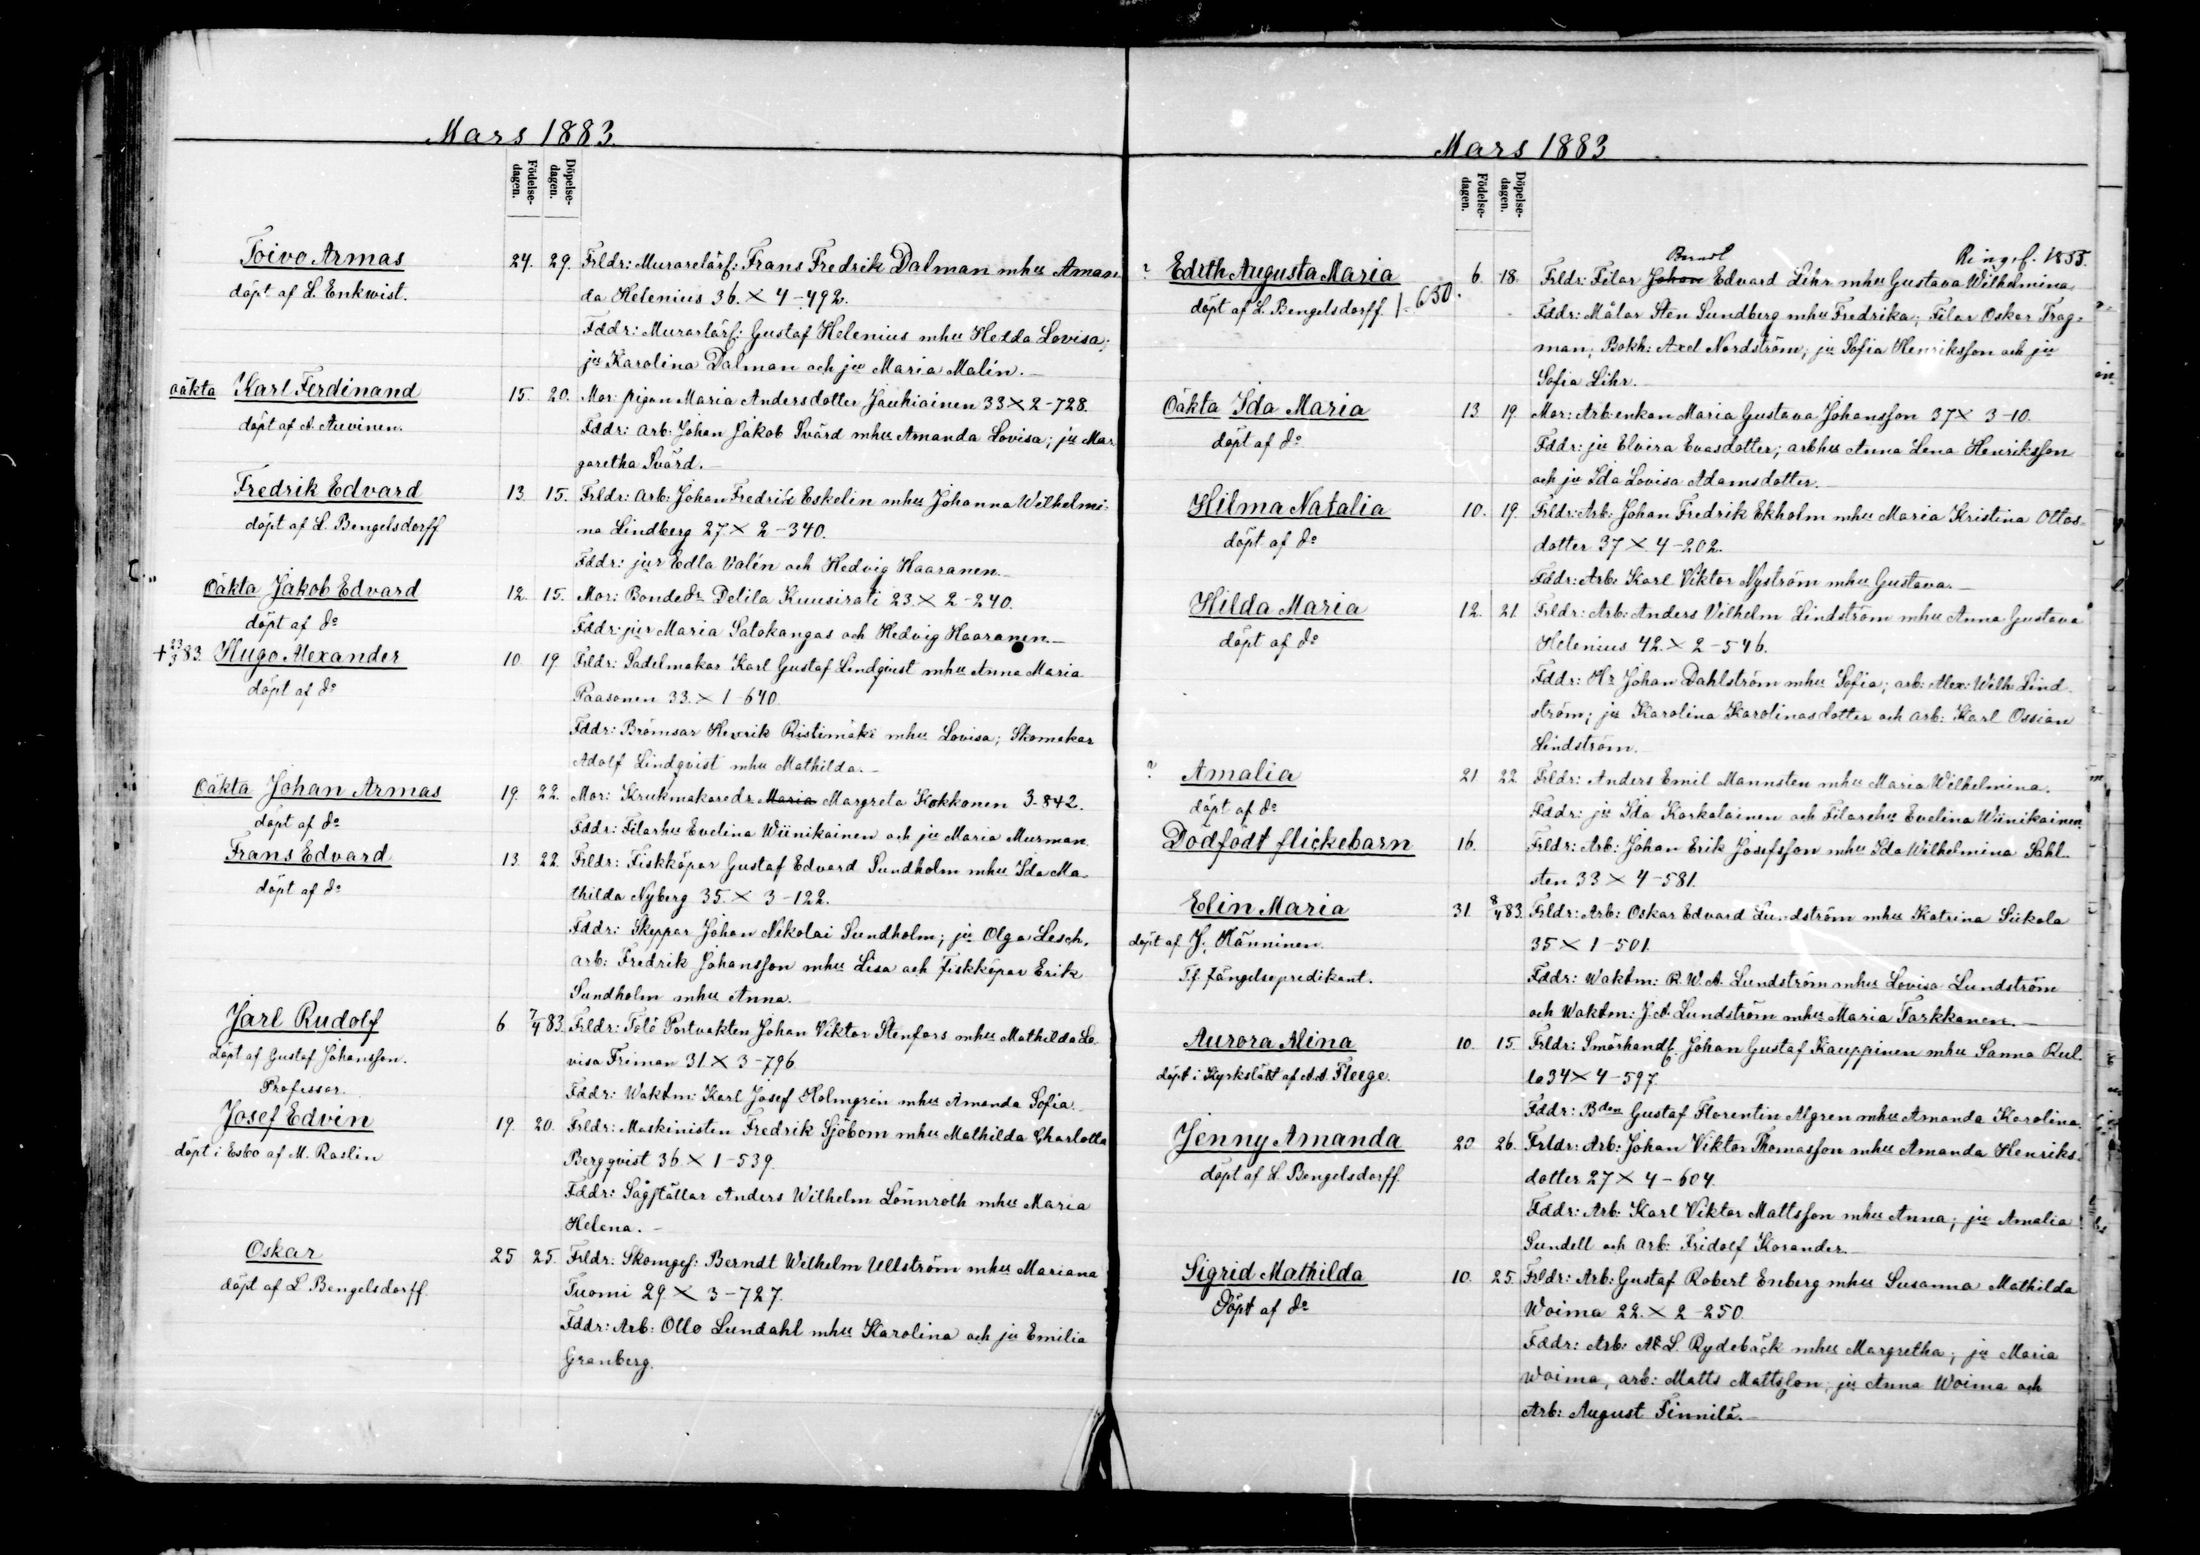 Mars 1883.
Födelse-
dagen.
Döpelse-
dagen.
Toivo Armas
döpt af L. Enkwist.
24. 29. Frldr: Murarelärl: Frans Fredrik Dalman mhu Aman-
da Helenius 36. × 4-492.
Fddr: Murarlärl: Gustaf Helenius mhu Helda Lovisa;
ju Karolina Dalman och ju Maria Malin.
oäkta Karl Ferdinand
döpt af A. Auvinen.
15. 20. Mor: pigan Maria Andersdotter Jauhiainen 33 × 2-728.
Fddr: arb: Johan Jakob Svärd mhu Amanda Lovisa; ju Mar
garetha Svärd.
Fredrik Edvard
döpt af L. Bengelsdorff
13. 15. Frldr: arb: Johan Fredrik Eskelin mhu Johanna Wilhelmi-
na Lindberg 27. × 2-340.
Fddr: jur Edla Valén och Hedvig Haaranen.
Oäkta Jakob Edvard
döpt af do
12. 15. Mor: Bondedr Delila Kuusirati 23. × 2-240.
Fddr: jur Maria Satokangas och Hedvig Haaranen.
+ 23/3 83. Hugo Alexander
döpt af do
10. 19. Frldr: Sadelmakar Karl Gustaf Lindqvist mhu Anna Maria
Paasonen 33. × 1-640.
Fddr: Brömsar Henrik Ristimäki mhu Lovisa; Skomakar
Adolf Lindqvist mhu Mathilda.
Oäkta Johan Armas
döpt af do
19. 22. Mor: Krukmakaredr Maria Margreta Kokkonen 3-842.
Fddr: Filarhu Evelina Wiinikainen och ju Maria Murman.
Frans Edvard
döpt af do
13. 22. Frldr: Fiskköpar Gustaf Edvard Sundholm mhu Ida Ma-
thilda Nyberg 35. × 3-122.
Fddr: Skeppar Johan Nikolai Sundholm; ju Olga Lesch,
arb: Fredrik Johansson mhu Lisa och Fiskköpar Erik
Sundholm mhu Anna.
Jarl Rudolf
döpt af Gustaf Johansson.
Professor.
6 7/4 83. Frldr: Tölö Portvakten Johan Viktor Stenfors mhu Mathilda Lo-
visa Friman 31. × 3-796.
Fddr: Waktm: Karl Josef Holmgrén mhu Amanda Sofia.
Josef Edvin
döpt i Esbo af M. Roslin
19. 20. Frldr: Maskinisten Fredrik Sjöbom mhu Mathilda Charlotta
Bergqvist 36. × 1-539.
Fddr: Sågställar Anders Wilhelm Lönnroth mhu Maria
Helena.
Oskar
döpt af L. Bengelsdorff.
25 25. Frldr: Skomges: Berndt Wilhelm Ullström mhu Mariana
Tuomi 29 × 3-727.
Fddr: Arb: Otto Lundahl mhu Karolina och ju Emilia
Granberg.
Mars 1883
Födelse-
dagen.
Döpelse-
dagen.
Berndt Ringf. 1855.
? Edith Augusta Maria
döpt af L. Bengelsdorff. 1-630.
6 18. Frldr: Filar Johan Edvard Lihr mhu Gustava Wilhelmina
Fddr: Målar Sten Sundberg mhu Fredrika; Filar Oskar Frag-
man; Bokh: Axel Nordström; ju Sofia Henriksson och ju
Sofia Lihr.
Oäkta Ida Maria
döpt af do
13 19. Mor: Arb:enkan Maria Gustava Johansson 37 × 3-10.
Fddr: ju Elvira Evasdotter; arbhu Anna Lena Henriksson
och ju Ida Lovisa Adamsdotter.
Hilma Natalia
döpt af do
10. 19. Frldr: Arb: Johan Fredrik Ekholm mhu Maria Kristina Ottos-
dotter 37 × 4-202.
Fddr: Arb: Karl Viktor Nyström mhu Gustava.
Hilda Maria
döpt af do
12. 21. Frldr: Arb: Anders Vilhelm Lindström mhu Anna Gustava
Helenius 42. × 2-546.
Fddr: Hr Johan Dahlström mhu Sofia; arb: Alex: Wilh: Lind-
ström; ju Karolina Karolinasdotter och arb: Karl Ossian
Lindström.
? Amalia
döpt af do
21 22 Frldr: Anders Emil Mannsten mhu Maria Wilhelmina.
Fddr: ju Ida Korkolainen och Filarehu Evelina Wiinikainen.
Dödfödt flickebarn
16. Frldr: Arb: Johan Erik Josefsson mhu Ida Wilhelmina Sahl-
sten 33 × 4-581.
Elin Maria
döpt af J. Känninen.
T.f. fängelsepredikant.
31. 8/4 83. Frldr: Arb: Oskar Edvard Lundström mhu Katrina Sickola
35 × 1-501.
Fddr: Waktm: R. W. A. Lundström mhu Lovisa Lundström
och Waktm: J. A. Lundström mhu Maria Tarkkanen.
Aurora Alina
döpt i Kyrkslätt af A. A. Fleege.
10. 15. Frldr: Smörhandl: Johan Gustaf Kauppinen mhu Sanna Rul-
la 34 × 4-597
Fddr: Bden Gustaf Florentin Algren mhu Amanda Karolina.
Jenny Amanda
döpt af L. Bengelsdorff.
20 26. Frldr: Arb: Johan Viktor Thomasson mhu Amanda Henriks-
dotter 27 × 4-604.
Fddr: Arb: Karl Viktor Mattsson mhu Anna; ju Amalia
Sundell och arb: Fridolf Korander.
Sigrid Mathilda
Döpt af do
10. 25. Frldr: Arb: Gustaf Robert Enberg mhu Susanna Mathilda
Woima 22. × 2-250.
Fddr: Arb: A. L. Rydebäck mhu Margretha; ju Maria
Woima, arb: Matts Mattsson; ju Anna Woima och
Arb: August Finnilä.